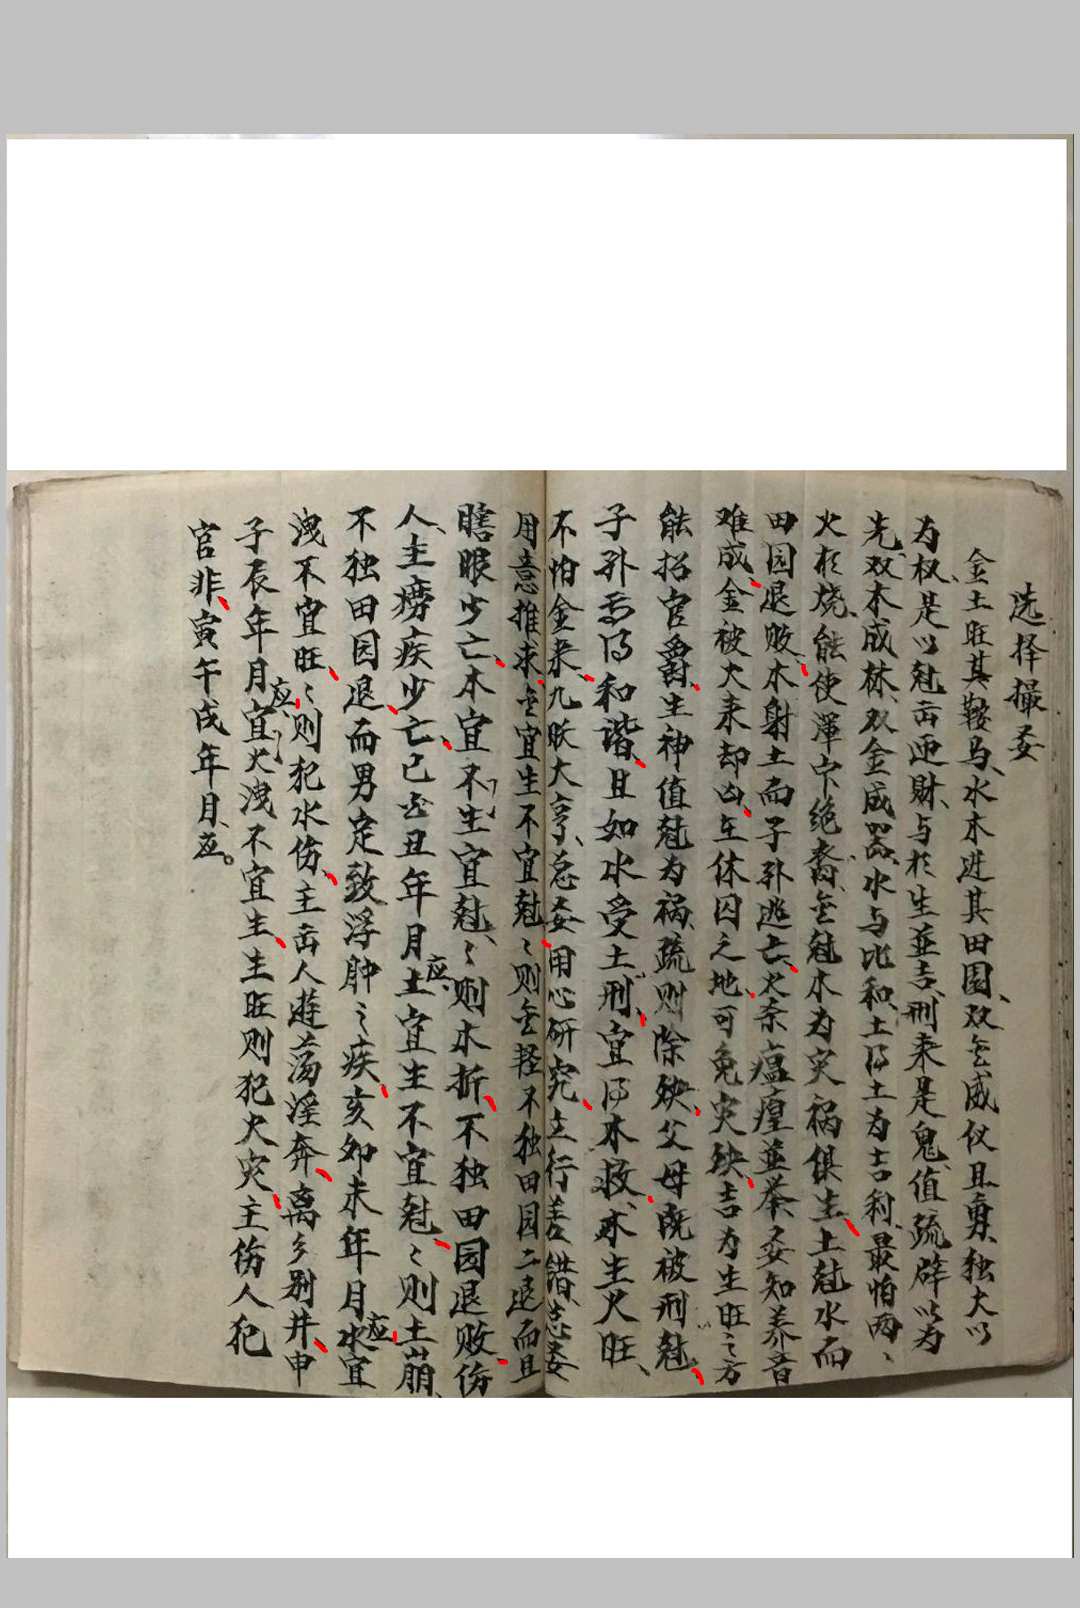 选择撮要
金土旺其鞍马、水木进其田園、双金威仪且勇、独大以
为权、是以尅击迎財、与於生並吉、刑来是鬼、值疏辟以为
先、双木成林、双金成器、水与比和、土得土为吉利、最怕两、
火相烧、能使浑家绝裔、金尅木为灾祸俱生、土尅水而
田园退败、木射土而子孙逃亡、火杀瘟瘴並举、要知养音
难成、金被火来却凶、在休囚之地、可免灾殃、吉为生旺之方
能招官爵、生神值尅为祸、疏则除殃、父母既被刑尅、
子孙焉得和谐、且如水受土刑、宜得木救、水生火旺、
不怕金来、九曜大亨、总要用心研究、立行差錯、总要
用意推求、金宜生不宜尅、尅则金轻、不独田园二退而且
瞎眼少亡、木宜不生宜尅、尅则木折、不独田园退败、伤
人、主痨疾少亡、巳酉丑年月应、土宜生不宜尅、尅则土崩、
不独田园退而男定致浮肿之疾、亥卯未年月应、水宜
洩不宜旺、旺则犯水伤、主击人遊荡淫奔、离乡别井、申
子辰年月应、宜火洩不宜生、生旺则犯火灾、主伤人犯
官非、寅午戌年月、应。